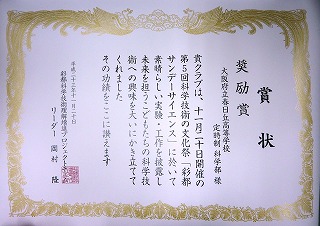 賞状
奨励賞
大阪府立春日丘高等学校
定時制 科学部 様
貴クラブは、十一月二十日開催の
第5回科学技術の文化祭「彩都
サンデーサイエンス」に於いて
素晴らしい実験・工作を披露し
未来を担うこどもたちの科学技
術への興味を大いにかき立てて
くれました
その功績をここに讃えます
平成二十三年十一月二十日
彩都科学技術理解増進プロジェクト
リーダー 岡村 隆